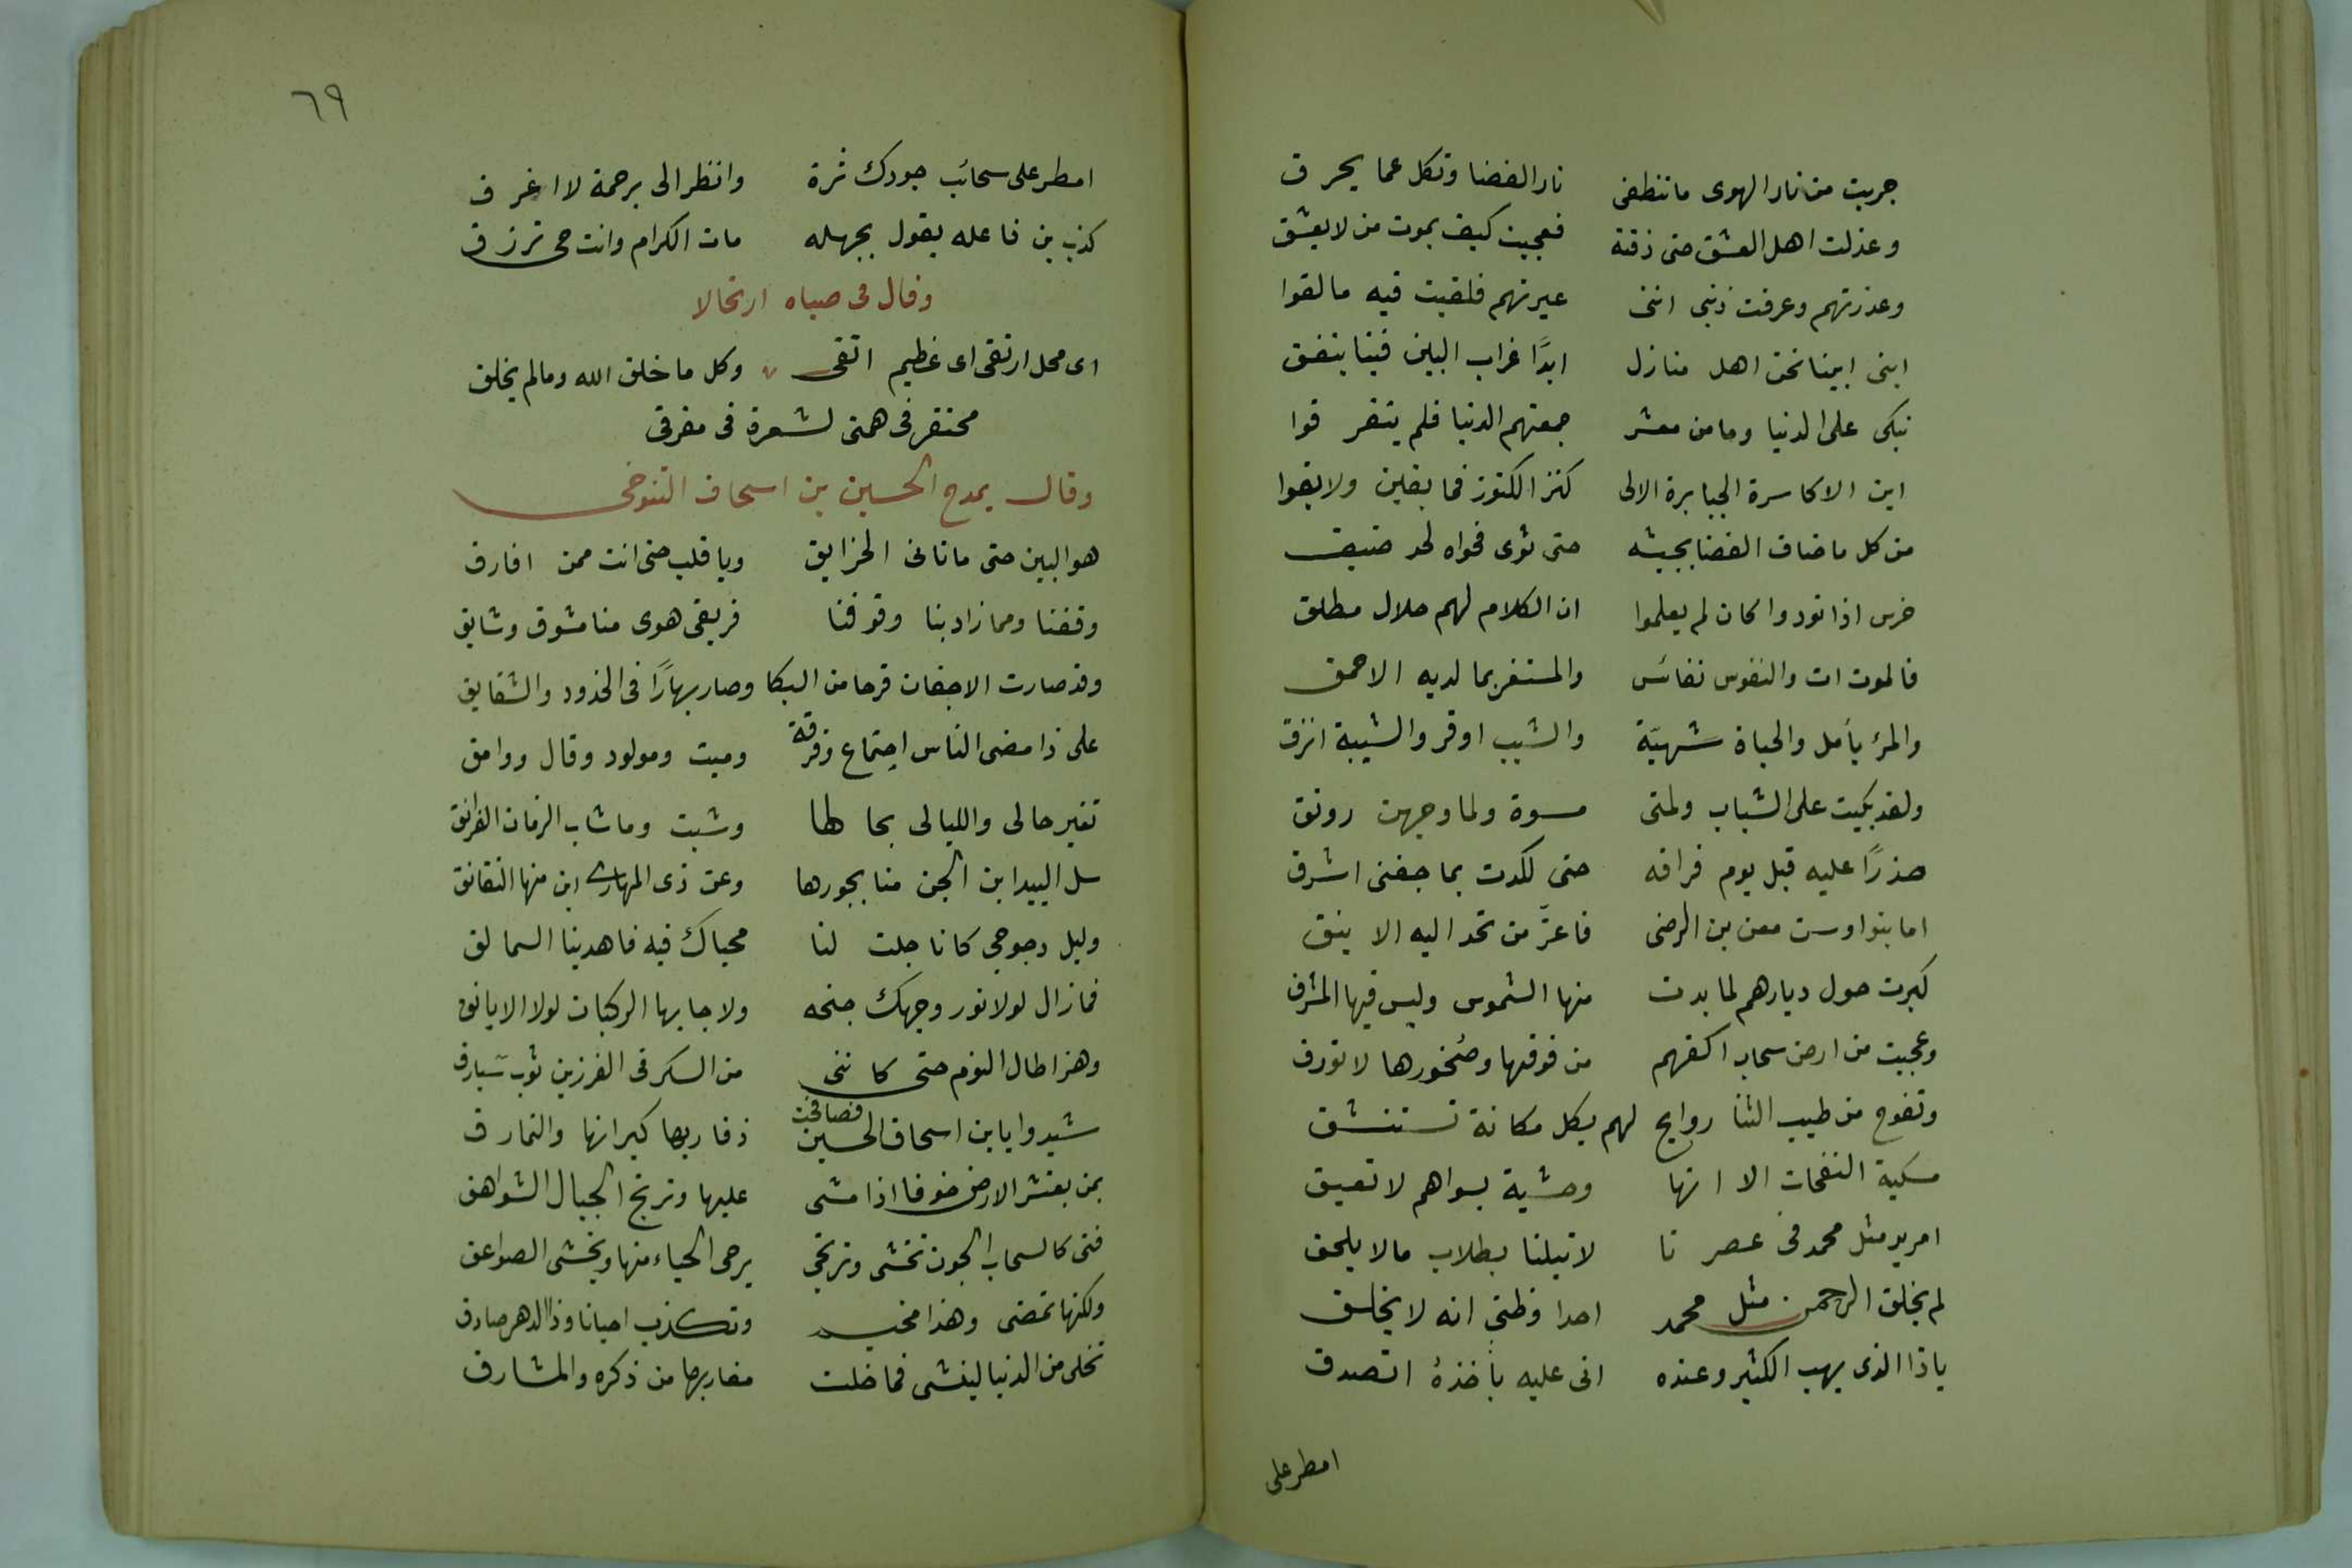 جربت من نار الهوى ما تنطفى نار الغضا وتكل عما يحرق
وعذلت اهل العشق حتى ذقته فعجبت كيف يموت من لا يعشق
وعذرتهم وعرفت ذنبى اننى عيرتهم فلقيت فيه ما لقوا
ابنى ابينا نحن اهل منازل ابدًا غراب البين فينا ينعق
نبكى على الدنيا وما من معشر جمعتهم الدنيا فلم يتفرقوا
اين الاكاسرة الجبابرة الالى كنز الكنوز فما بقين ولا بقوا
من كل ما ضاق الفضا بجيشه حتى ثوى فحواه لحد ضيق
خرس اذا نودوا كان لم يعلموا ان الكلام لهم حلال مطلق
فالموت ات والنفوس نفائس والمستغر بما لديه الاحمق
والمرٔ يأمل والحياة شهيّة والشيب اوقر والشبيبة انزق
ولقد بكيت على الشباب ولمتى مسوة ولما وجهى رونق
حذرًا عليه قبل يوم فراقه حتى لكدت بما جفنى اشرق
اما بنوا اوس بن معن بن الرضى فاعزّ من تحد اليه الاينق
كبرت حول ديارهم لما بدت منها الشموس وليس فيها المشرق
وعجبت من ارض سحاب اكفهم من فوقها وصُخورها لا تورق
وتفوح من طيب الثنا روايح لهم بكل مكانة تستنشق
مسكية النفحات الا انها وحشية بسواهم لا تعبق
امريد مثل محمد فى عصرنا لا تبلنا بطلاب ما لا يلحق
لم يخلق الرحمن مثل محمد احدا وظنى انه لا يخلق
ياذا الذى يهب الكثير وعنده انى عليه بأخذهٔ اتصدق
امطر على
٦٩
امطر على سحائب جودك ثرة وانظر الى برحمة لا اغرق
كذب بن فاعله يقول بجهله مات الكرام وانت حى ترزق
وقال فى صباه ارتجالا
اى محل ارتقى اى عظيم اتقى وكل ما خلق الله وما لم يخلق
محتقر فى همتى لشعرة فى مفرقى
وقال يمدح الحسين بن اسحاق التنوخى
هو البين حتى ما تانى الحزايق ويا قلب حتى انت ممن افارق
وقفنا ومما زاد بنا وقوفنا فريقى هوى منا مشوق وشايق
وقد صارت الاجفان قرحا من البكا وصار بهارًا فى الخذود والشقايق
على ذا مضى الناس اجتماع وفرقة وميت ومولود وقال ووامق
تغير حالى والليالى بحالها وشبت وما شاب الزمان الغرانق
سل البيد اين الجن منا بجورها وعن ذى المهارى اين منها النقانق
وليل دجوجى كانا جلت لنا محياك فيه فاهدينا السمالق
فمازال لولا نور وجهك جنحه ولا جابها الركبات لولا الايانق
وهز اطال النوم حتى كاننى من السكر فى الغرزين ثوب شبارق
شيدوا يا بن اسحاق الحسين فصافحت ذفاريها كيرانها والنمارق
بمن يقتشر الارض خوفا اذا مشى عليها وترتج الجبال الشواهق
فتى كالسحاب الجون تخشى وترتجى يرجى الحياء منها ويخشى الصواعق
ولكنها تمضى وهذا مخيم وتكذب احيانا وذا الدهر صادق
تخلى من الدنيا لينشى فما خلت مغاربها من ذكره والمشارق